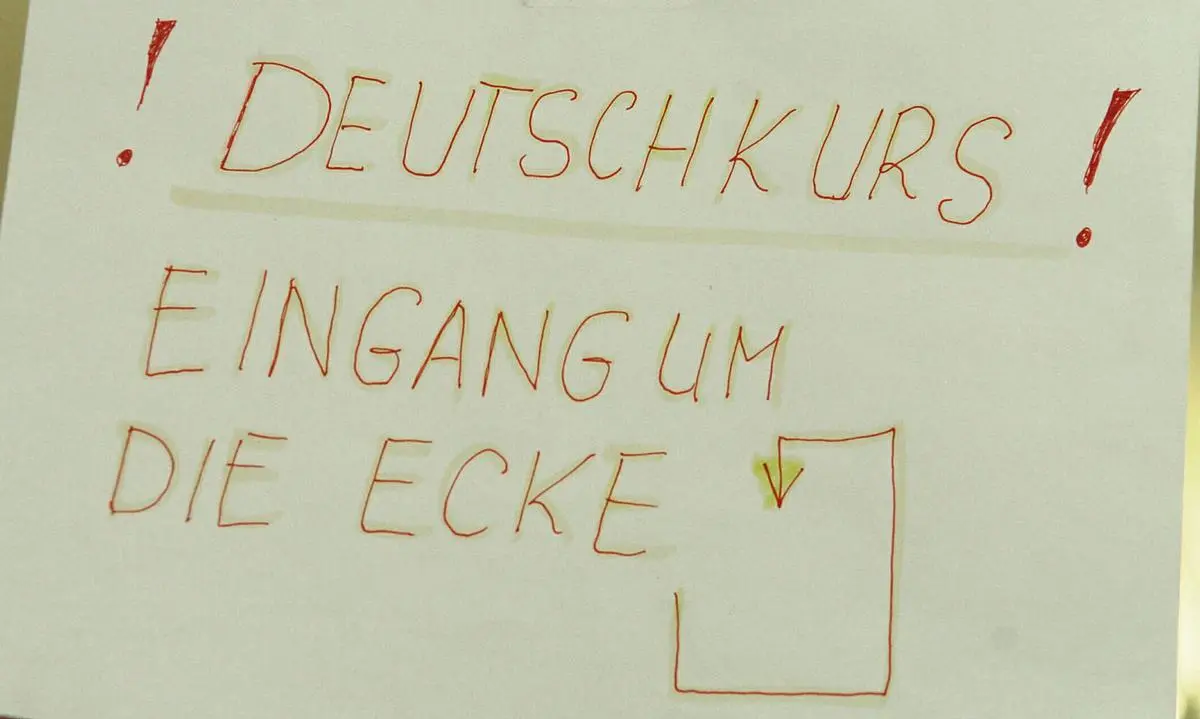 ! DEUTSCHKURS !
EINGANG UM
DIE ECKE